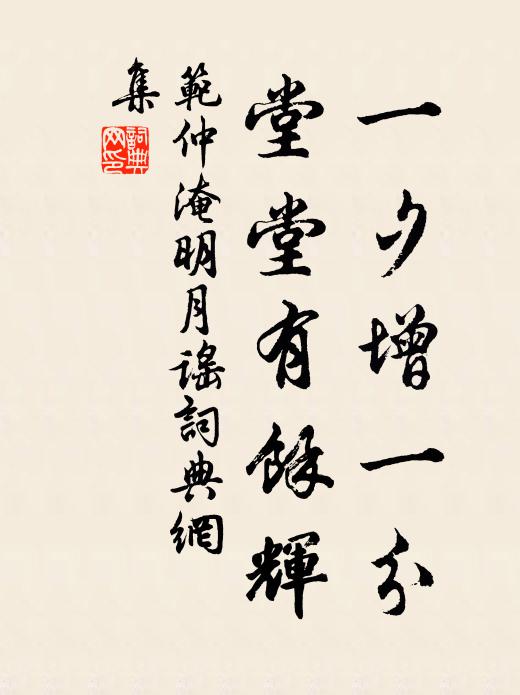 一夕增一分
堂堂有餘輝
範仲淹明月謠詞典網
集
詞典
网印